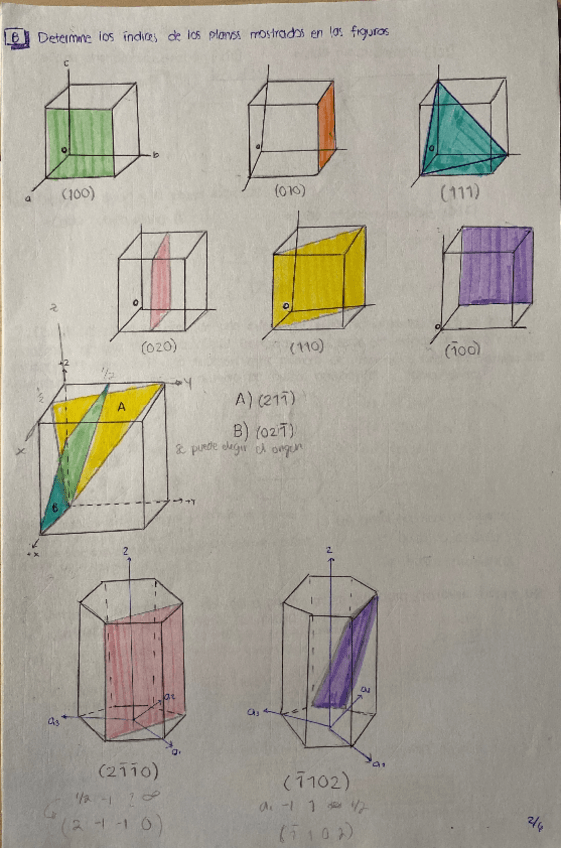 B Determine los índices de los planos mostrados en las figuras
c
o
b
a
(100)
o
(010)
o
(111)
o
(020)
o
(110)
o
(1̅00)
z
z
1/2
1/2
+y
A
x
B
+y
+x
A) (211̅)
B) (021̅)
Se puede elegir el origen
z
a2
a3
a1
(21̅1̅0)
1/2 -1 ∞
(2 -1 -1 0)
z
a2
a3
a1
(1̅102)
a1 -1 1 ∞ 1/2
(1̅ 1 0 2)
2/6